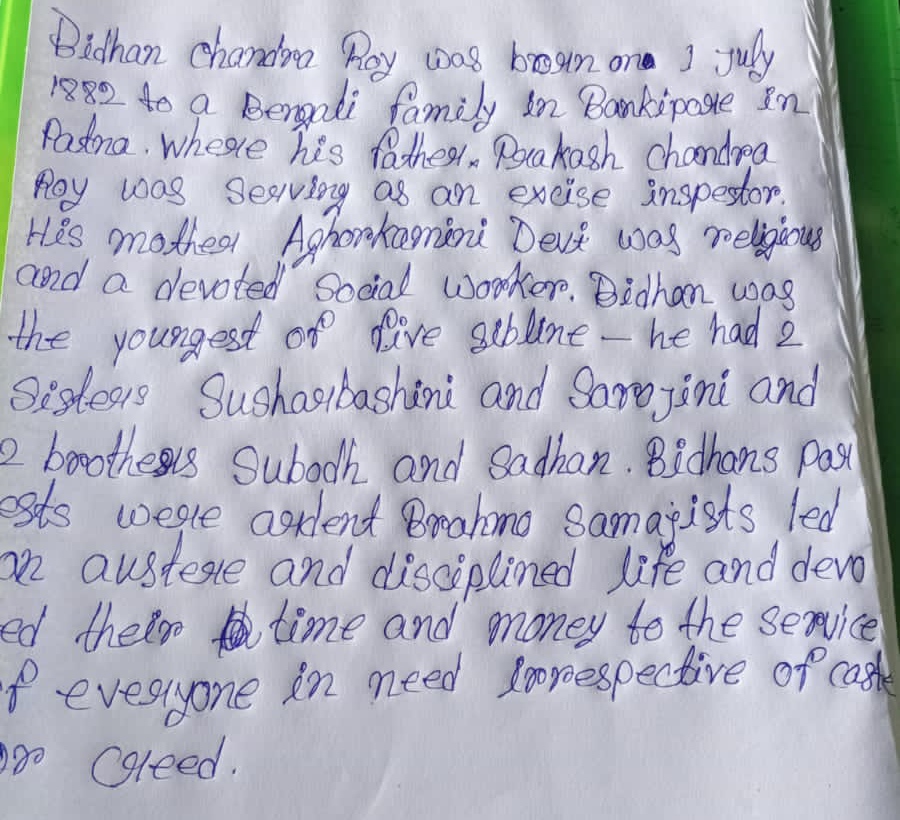 Bidhan chandra Roy was broun on 1 July
1882 to a Bengali family in Bankipore in
Patna. Where his father. Prakash chandra
Roy was serving as an excise inspestor.
His mother Aghorkamini Devi was religious
and a devoted social worker. Bidhan was
the youngest of five sibline – he had 2
Sisters Susharbashini and Sarojini and
2 broothers Subodh and Sadhan. Bidhans par
ests were ardent Brahmo Samajists led
an austere and disciplined life and devo
ed their time and money to the service
of everyone in need irrespective of caste
or creed.